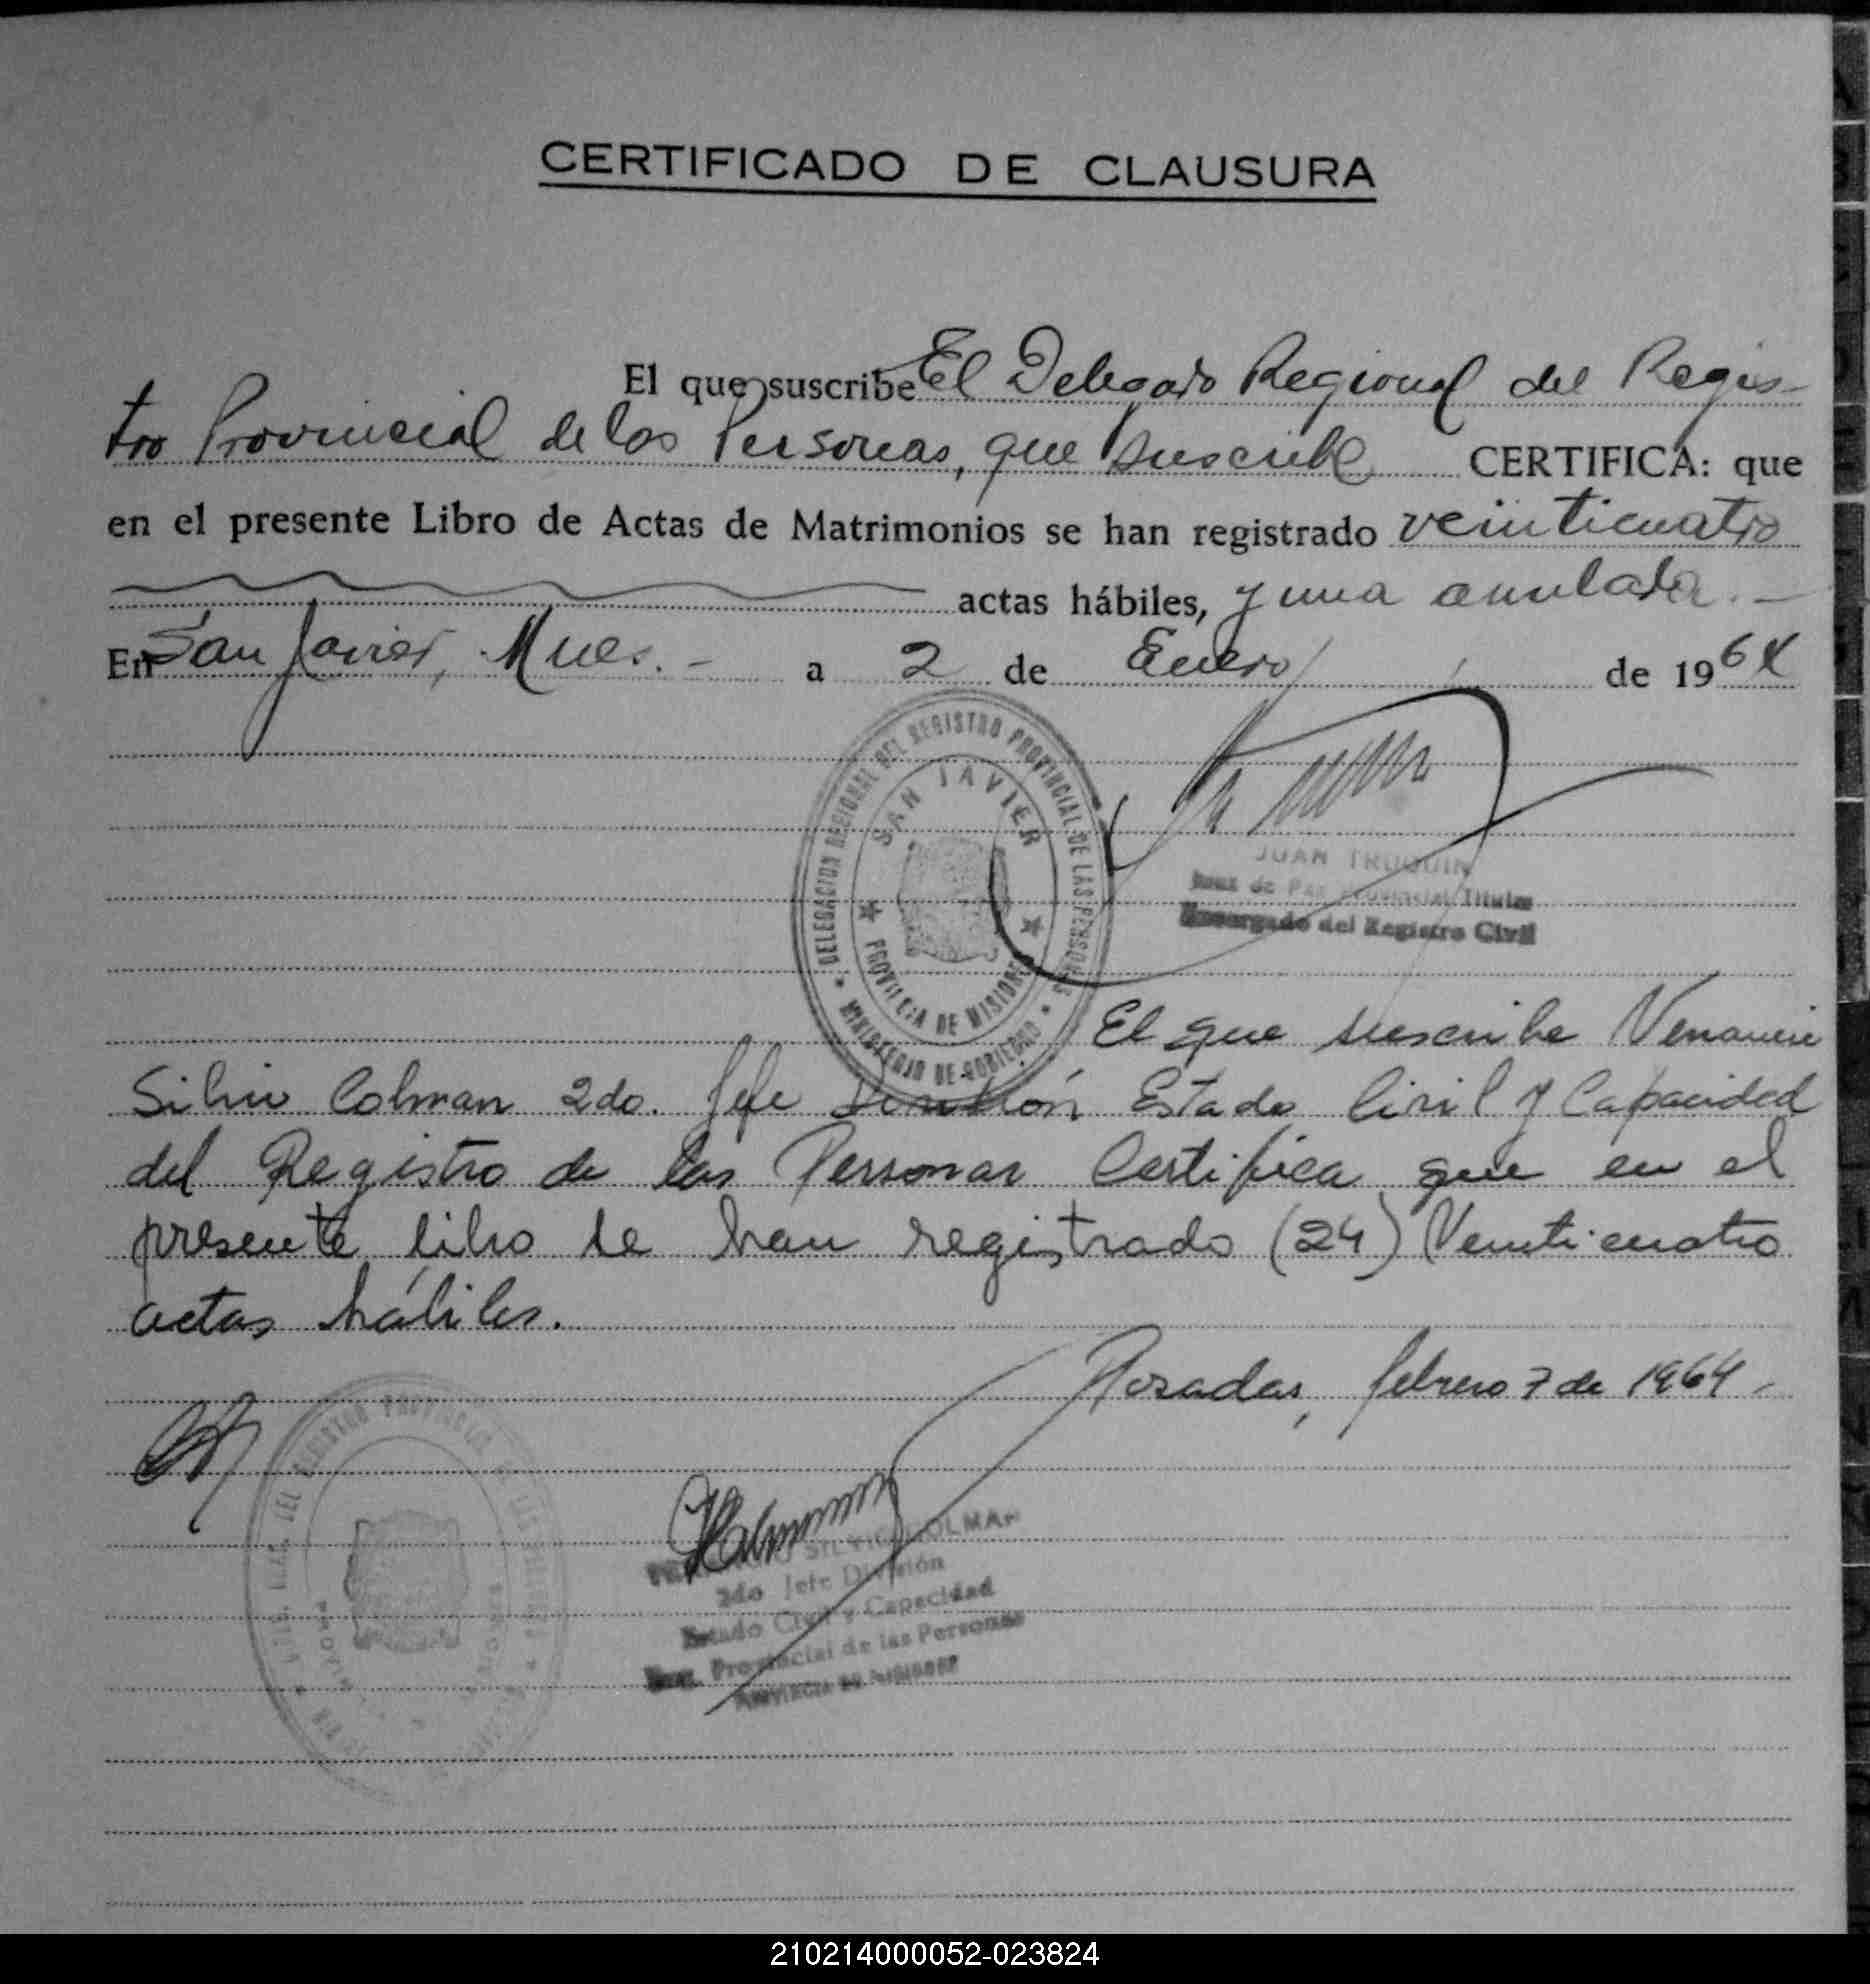 CERTIFICADO DE CLAUSURA
El que suscribe El Delegado Regional del Regis-
tro Provincial de las Personas, que suscribe CERTIFICA: que
en el presente Libro de Actas de Matrimonios se han registrado veinticuatro
actas hábiles, y una anulada.-
En San Javier, Mnes.- a 2 de Enero de 1964
DELEGACION REGIONAL DEL REGISTRO PROVINCIAL DE LAS PERSONAS
SAN JAVIER
PROVINCIA DE MISIONES
MINISTERIO DE GOBIERNO
JUAN TRUQUIN
Juez de Paz Provincial Titular
Encargado del Registro Civil
El que suscribe Venancio
Silvio Colman 2do. Jefe División Estado Civil y Capacidad
del Registro de las Personas Certifica que en el
presente libro se han registrado (24) Veinticuatro
actas hábiles.
Posadas, febrero 7 de 1964-
DEL REGISTRO PROVINCIAL DE LAS
SILVIO COLMAN
2do Jefe División
Estado Civil y Capacidad
Reg. Provincial de las Personas
PROVINCIA DE MISIONES
210214000052-023824